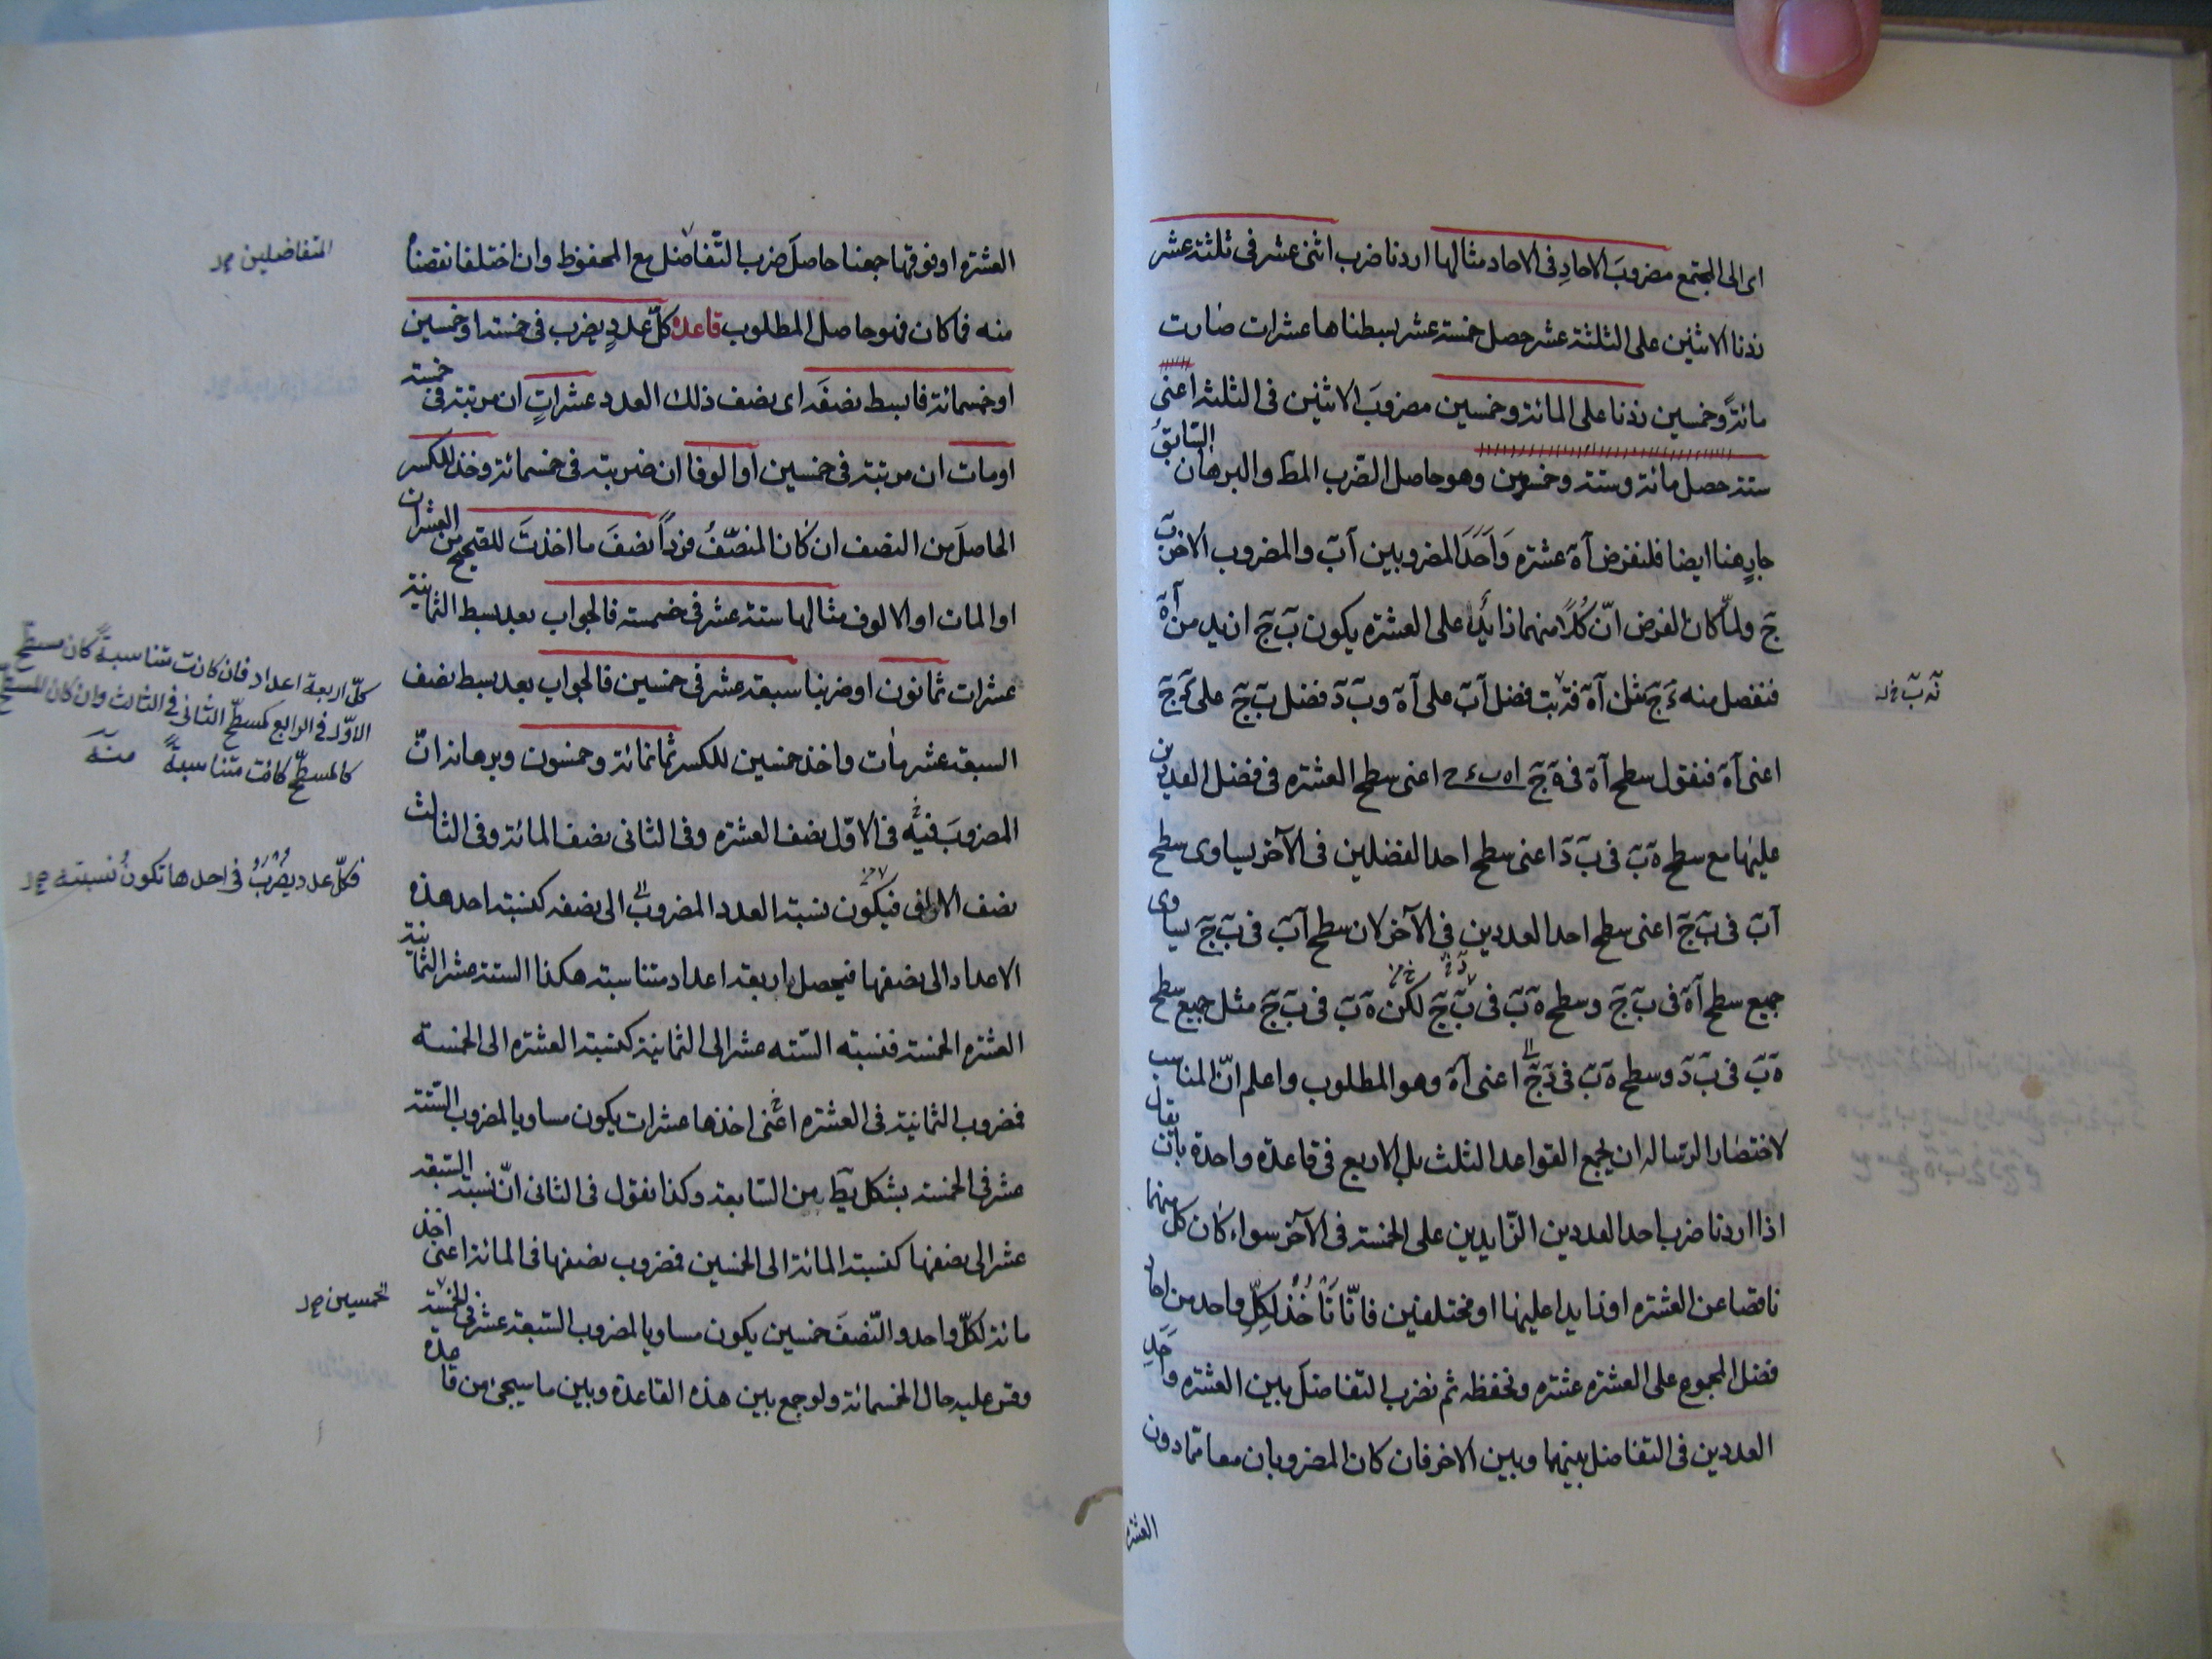 اى الى المجتمع مضروبَ الاحادِ فى الاحاد مثالها اردنا ضرب اثنى عشر فى ثلثة عشر
زدنا الاثنين على الثلثة عشر حصل خمسة عشر بسطناها عشرات صارت
مائةً وخمسين زدنا على المائة وخمسين مضروبَ الاثنين فى الثلثة اعنى
ستة حصل مائة وستة وخمسين وهو حاصل الضرب المط والبرهان السابقُ
جارٍ هنا ايضا فلنفرض آه عشره وَاَحَدَ المضروبين آب والمضروب الاخر ب
ج ولمّا كان الفرض انّ كُلاًّ منهما زايدًا على العشره يكون ب ج ازيد من آه
فنفصل منه ء ج مثل آه فه ب فضل آب على آه و ب د فضل ب ج على ء ج
اعنى آه فنقول سطح آه فى ه ج ا ه ب ء ج اعنى سطح العشره فى فضل العددين
عليها مع سطح ه ب فى ب د اعنى سطح احد الفضلين فى الآخر يساوى سطح
آب فى ب ج اعنى سطح احد العددين فى الآخر لان سطح آب فى ب ج يساوى
جميع سطح آه فى ب ج وسطح ه ب فى ب ج لكن ه ب فى ب ج مثل جميع سطح
ه ب فى ب د وسطح ه ب فى د ج اعنى آه وهو المطلوب واعلم انّ المناسب
لاختصار الرساله ان يجمع القواعد الثلث بل الاربع فى قاعدة واحدة بان يقال
اذا اردنا ضرب احد العددين الزّايدين على الخمسة فى الآخر سواء كان كل منهما
ناقصا عن العشره او زايدا عليها او مختلفين فانّا نَأْخُذُ لِكِلّ واحد من احاد
فضل المجموع على العشره عشره ونحفظه ثم نضرب التفاضل بين العشره واَحَدِ
العددين فى التفاضل بينها وبين الاخر فان كان المضروبان معا ممّا دون
العشره
العشره او فوقها جمعنا حاصلَ ضرب التّفاضل مع المحفوظ وان اختلفا نقصناه
منه فما كان فهو حاصل المطلوب قاعده كلّ عددٍ يضرب فى خمسة او خمسين
او خمسمائة فابسط نصفَه اى نصف ذلك العدد عشراتٍ ان ضربته فى خمسة
او مات ان ضربته فى خمسين او الوفا ان ضربته فى خمسمائة وخذ للكسر
الحاصلَ من النصف ان كان المنصّفُ فرداً نصفَ ما اخذتَ للصّحيح من العشرات
او المات او الالوف مثالها ستة عشر فى خمسة فالجواب بعد بسط الثمانية
عشرات ثمانون او ضربنا سبعة عشر فى خمسين فالجواب بعد بسط نصف
السبعة عشر مات واخذ خمسين للكسر ثمانمائة وخمسون وبرهانه انّ
المضروبَ فيه فى الاوّل نصف العشره وفى الثانى نصف المائة وفى الثالث
نصف الالف فيكون نسبة العدد المضروب الى نصفه كنسبة احد هذه
الاعداد الى نصفها فيحصل اربعة اعداد متناسبة هكذا الستة عشر الثمانية
العشره الخمسة فنسبة السّته عشر الى الثمانية كنسبة العشره الى الخمسة
فضروب الثمانية فى العشره اعنى اخذها عشرات يكون مساويا لمضروب السّتة
عشر فى الخمسة بشكل يط من السّابعة وكذا نقول فى الثانى انّ نسبة السّبعة
عشر الى نصفها كنسبة المائة الى الخمسين فمضروب نصفها فى المائة اعنى اخذ
مائة لكلّ واحد والنّصفَ خمسين يكون مساويا لمضروب السّبعة عشر فى الخمسة
وقس عليه حال الخمسمائة ولو جمع بين هذه القاعدة وبين ما سيجئ من قاعدة
المتفاضلين صح
كلّ اربعة اعداد فان كانت متناسبةً كان مسطّح
الاوّل فى الرابع كمسطّح الثانى فى الثالث وان كان المسطّح
كالمسطّح كانت متناسبةً منه
فكلّ عدد يُضْرَبُ فى احدها تكونُ نسبته صح
الخمسين صح